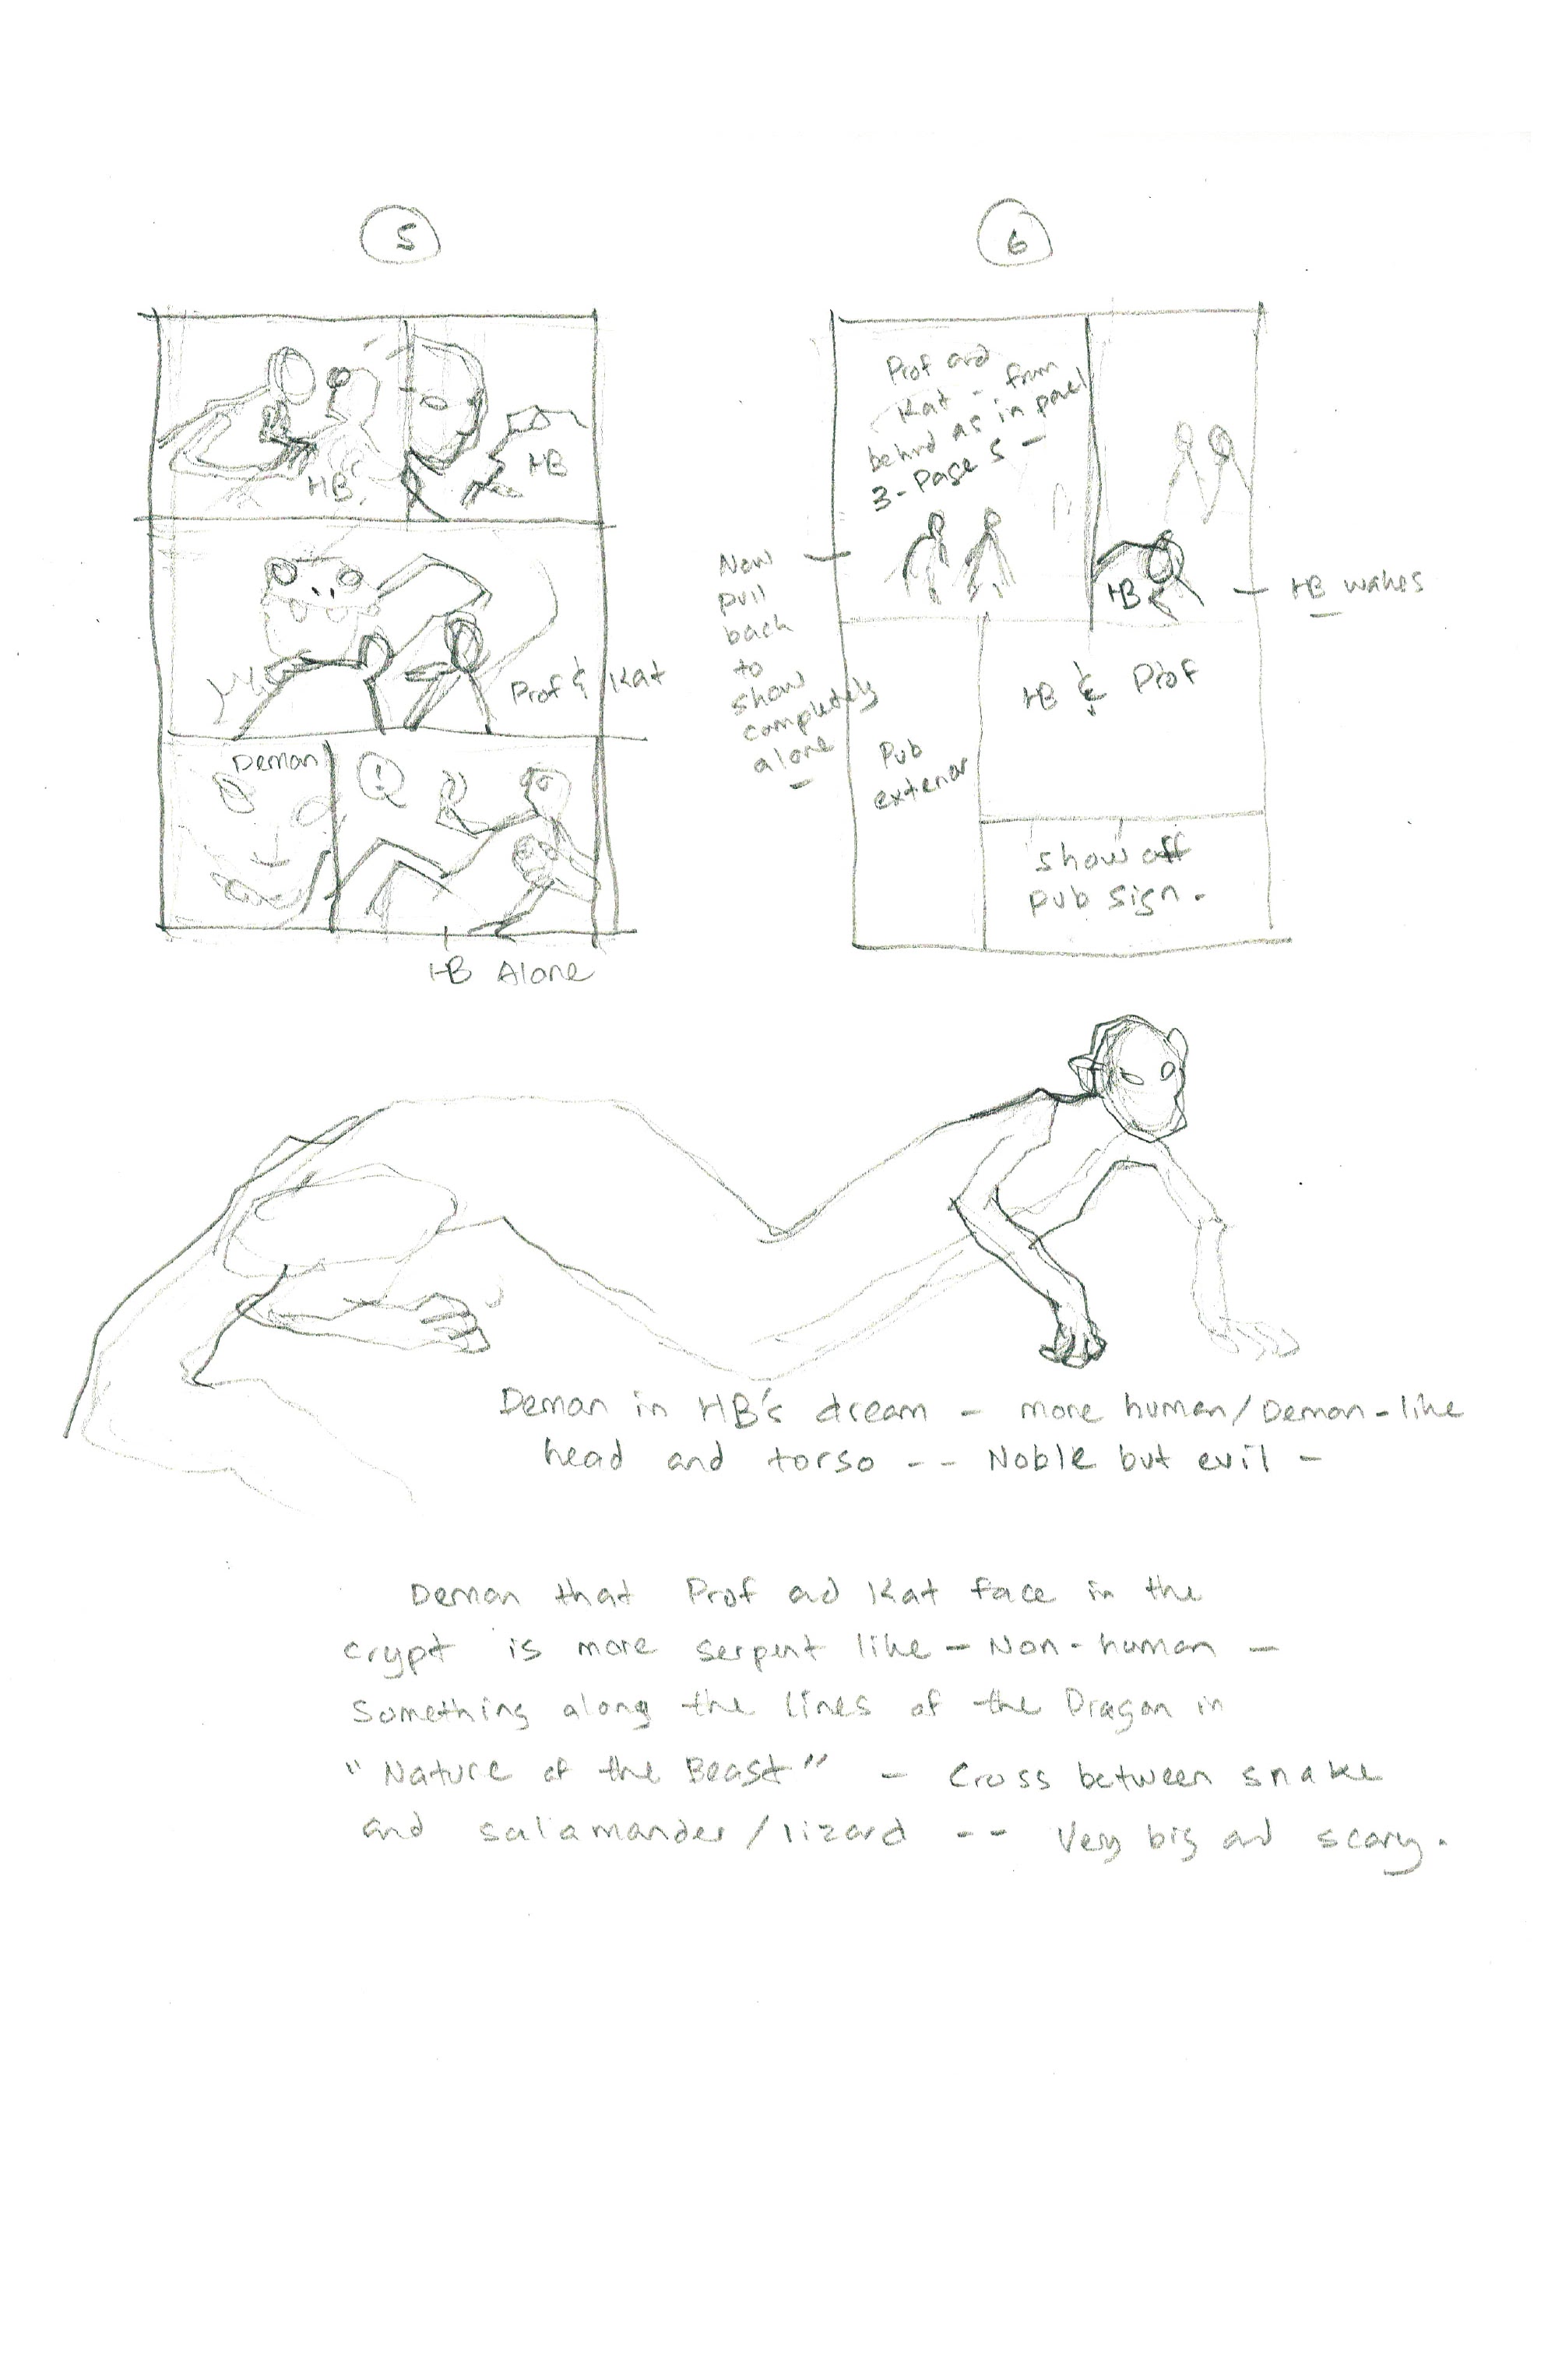 5
HB
HB
Prof & Kat
Demon
!
HB Alone
6
Prof and
Kat - from
behind as in panel
3 - Page 5 -
Now
pull
back
to
show
completely
alone
HB
HB wakes
HB & Prof
Pub
exterior
show off
pub sign.
Demon in HB's dream - more human/Demon-like
head and torso -- Noble but evil -
Demon that Prof ad Kat face in the
crypt is more serpent like - Non-human -
Something along the lines of the Dragon in
"Nature of the Beast" - Cross between snake
and salamander/lizard -- Very big ad scary.